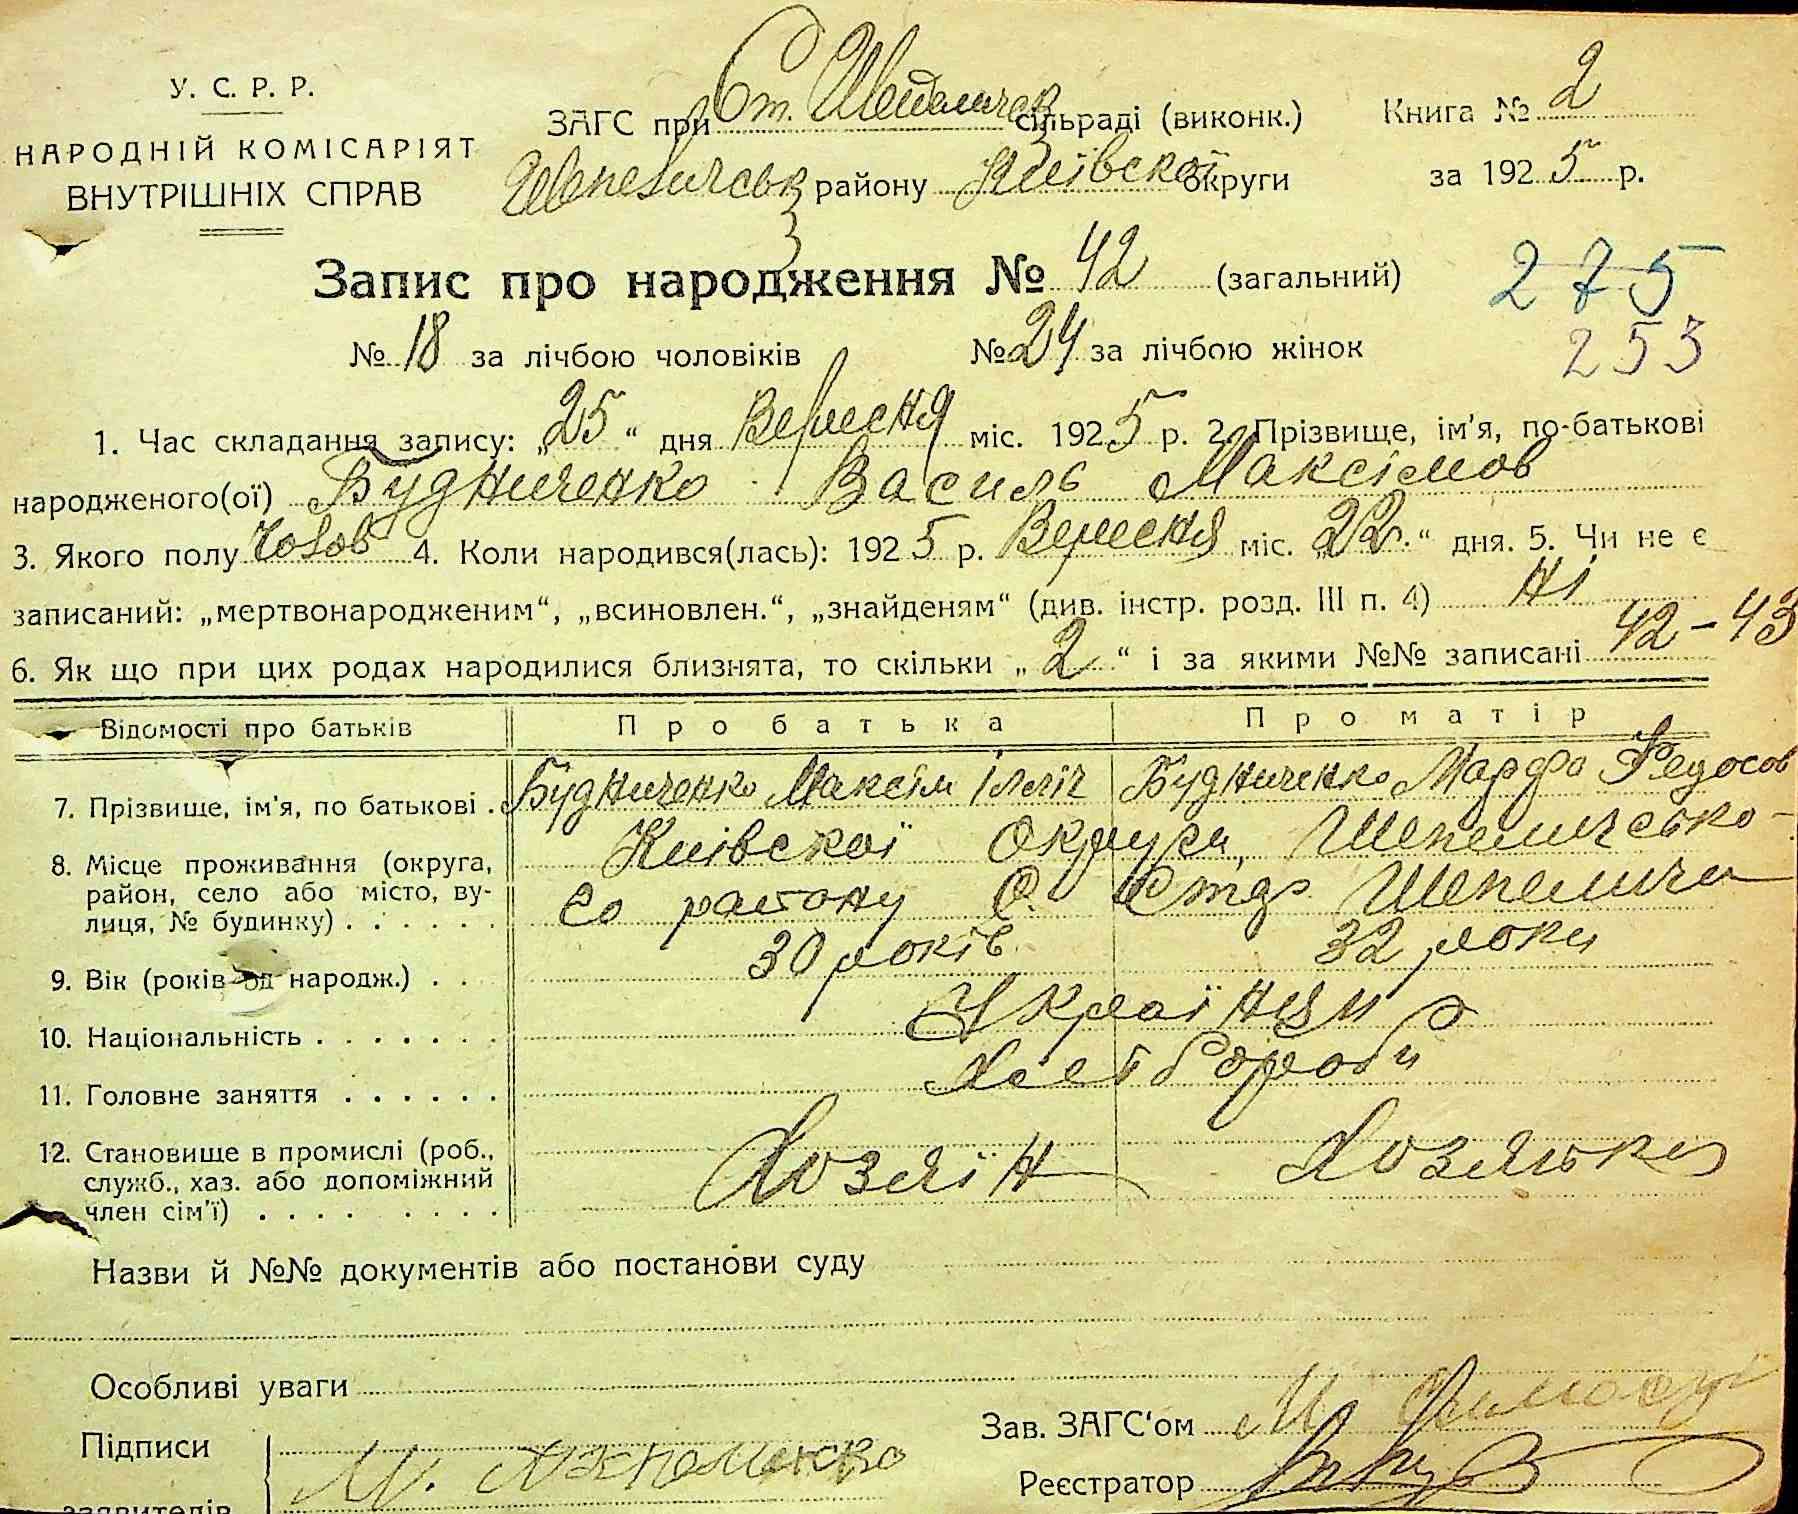 У. С. Р. Р.
НАРОДНІЙ КОМІСАРІЯТ
ВНУТРІШНІХ СПРАВ
ЗАГС при Ст. Шепеличск сільраді (виконк.)
Шепелическ району Київської округи
Книга № 2
за 1925 р.
Запис про народження № 42 (загальний)
275
№ 18 за лічбою чоловіків № 24 за лічбою жінок
253
1. Час складання запису: „25“ дня Вересня міс. 1925 р. 2. Прізвище, ім'я, по-батькові
народженого(ої) Будниченко Василь Максімов
3. Якого полу Чолов 4. Коли народився(лась): 1925 р. Вересня міс. „22.“ дня. 5. Чи не є
записаний: „мертвонародженим“, „всиновлен.“, „знайденям“ (див. інстр. розд. III п. 4) Ні
6. Як що при цих родах народилися близнята, то скільки „2“ і за якими №№ записані 42-43
Відомості про батьків Про батька Про матір
7. Прізвище, ім'я, по батькові . Будниченко Максім Ілліч Будниченко Марфа Федосов
8. Місце проживання (округа, Київскої Округи, Шепелическо-
район, село або місто, ву- го району С. Стар Шепеличи
лиця, № будинку) . . . . . .
9. Вік (років од народж.) . . 30 років 32 роки
10. Національність . . . . . . . Українци
11. Головне заняття . . . . . . Хлеб ороби
12. Становище в промислі (роб., Хозяїн Хозяйка
служб., хаз. або допоміжний
член сім'ї) . . . . . . . .
Назви й №№ документів або постанови суду
Особливі уваги
Підписи
заявителів
Зав. ЗАГС‘ом
Реєстратор